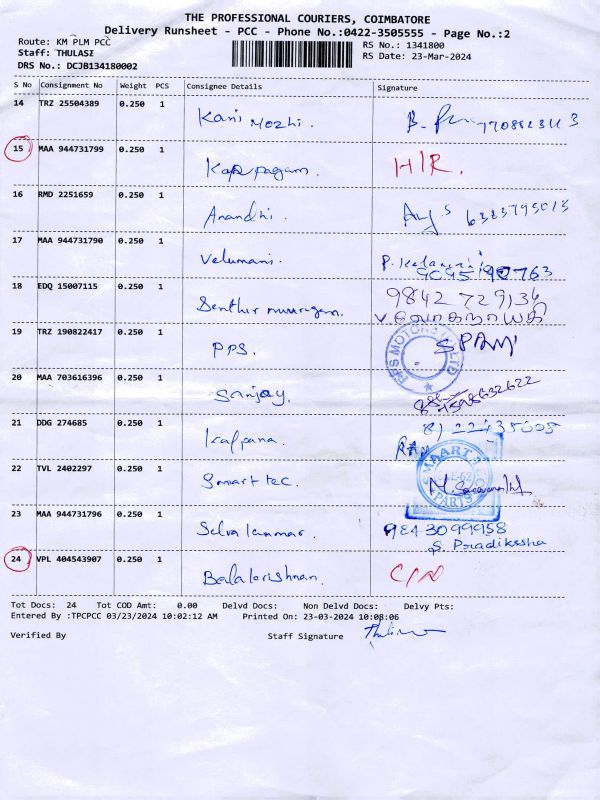 THE PROFESSIONAL COURIERS, COIMBATORE
Delivery Runsheet - PCC - Phone No.:0422-3505555 - Page No.:2
Route: KM PLM PCC
RS No.: 1341800
Staff: THULASI
RS Date: 23-Mar-2024
DRS No.: DCJB134180002
S No Consignment No Weight PCS Consignee Details Signature
14 TRZ 25504389 0.250 1 Kani Mozhi.
15 MAA 944731799 0.250 1 Karpagam. H/R.
16 RMD 2251659 0.250 1 Anandhi. 6383795013
17 MAA 944731790 0.250 1 Velumani.
18 EDQ 15007115 0.250 1 Senthur murugan. 9842 729134
லோகநாயகி
19 TRZ 190822417 0.250 1 PPS.
20 MAA 703616396 0.250 1 Sanjay.
21 DDG 274685 0.250 1 Kalpana.
22 TVL 2402297 0.250 1 Smart tec.
23 MAA 944731796 0.250 1 Selvakumar. 9843099958
S. Pradiksha
24 VPL 404543907 0.250 1 Balakrishnan. C/N
Tot Docs: 24 Tot COD Amt: 0.00 Delvd Docs: Non Delvd Docs: Delvy Pts:
Entered By :TPCPCC 03/23/2024 10:02:12 AM Printed On: 23-03-2024 10:08:06
Verified By Staff Signature